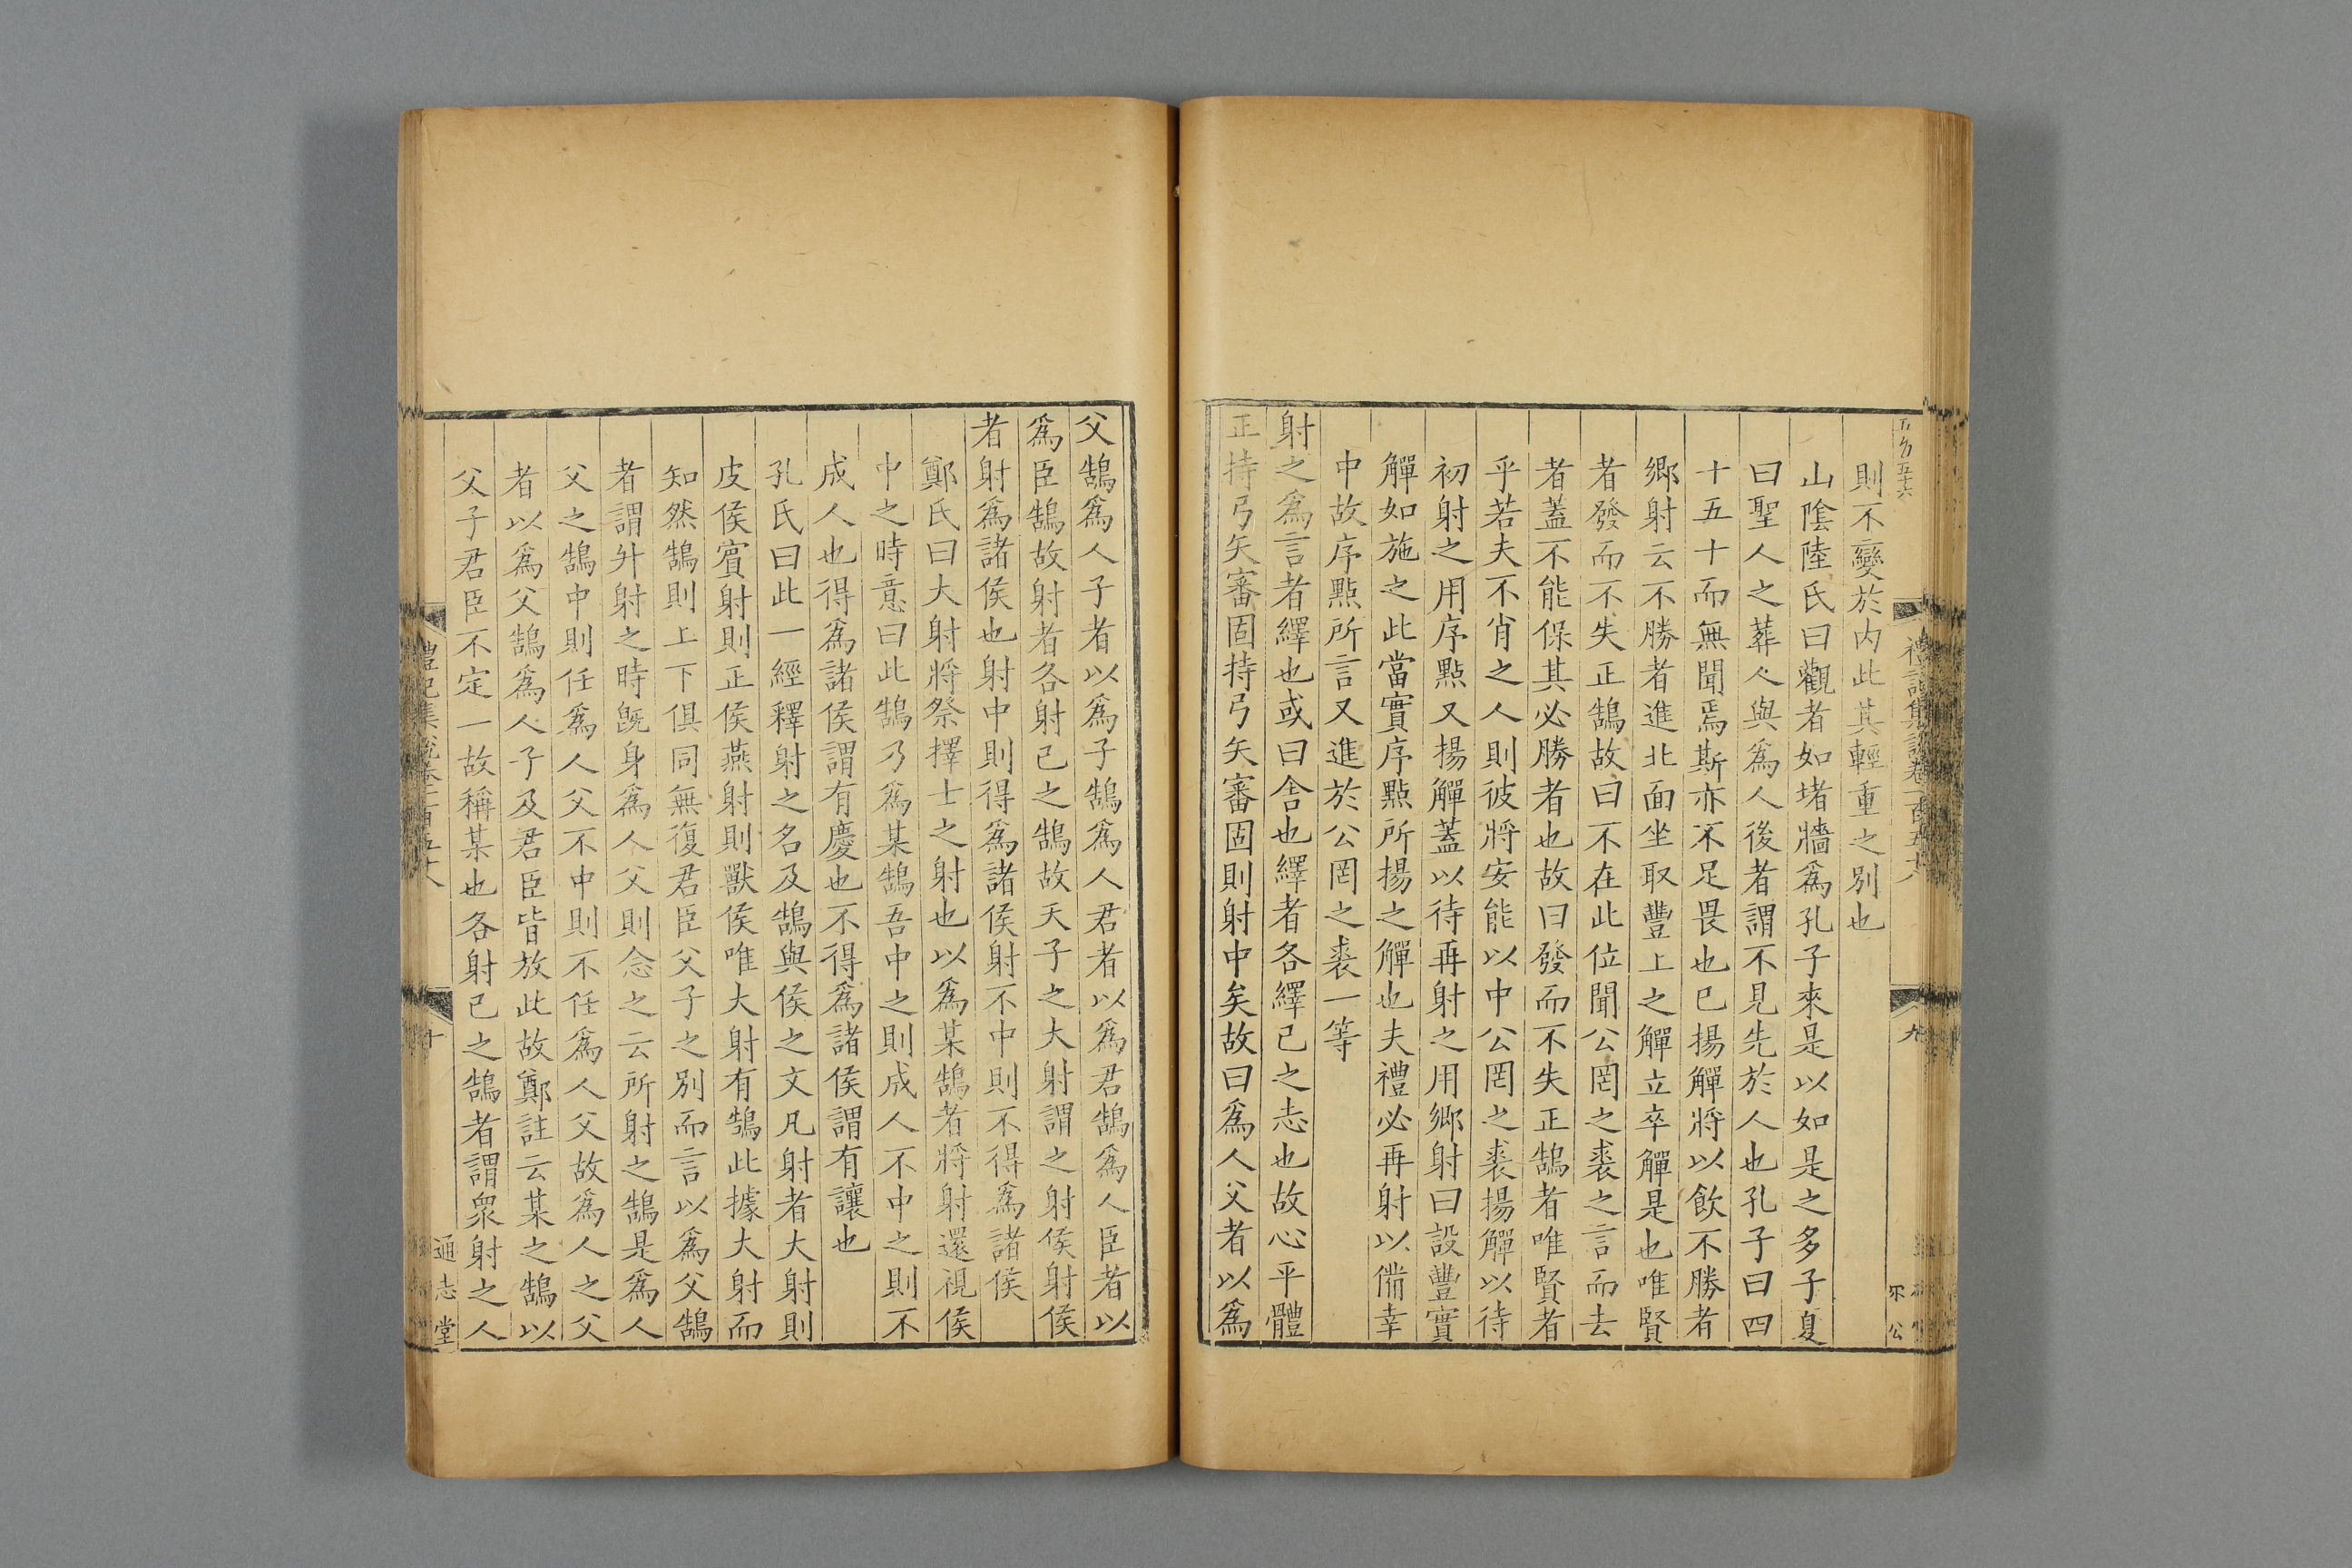 則不變於内此其輕重之別也
山陰陸氏曰觀者如堵牆爲孔子來是以如是之多子夏
曰聖人之葬人與爲人後者謂不見先於人也孔子曰四
十五十而無聞焉斯亦不足畏也已揚觶將以飲不勝者
鄉射云不勝者進北面坐取豐上之觶立卒觶是也唯賢
者發而不失正鵠故曰不在此位聞公罔之裘之言而去
者蓋不能保其必勝者也故曰發而不失正鵠者唯賢者
乎若夫不肖之人則彼將安能以中公罔之裘揚觶以待
初射之用序點又揚觶蓋以待再射之用鄉射曰設豐實
觶如施之此當實序點所揚之觶也夫禮必再射以備幸
中故序點所言又進於公罔之裘一等
射之爲言者繹也或曰舍也繹者各繹己之志也故心平體
正持弓矢審固持弓矢審固則射中矣故曰爲人父者以爲
父鵠爲人子者以爲子鵠爲人君者以爲君鵠爲人臣者以
爲臣鵠故射者各射己之鵠故天子之大射謂之射侯射侯
者射爲諸侯也射中則得爲諸侯射不中則不得爲諸侯
鄭氏曰大射將祭擇士之射也以爲某鵠者將射還視侯
中之時意曰此鵠乃爲某鵠吾中之則成人不中之則不
成人也得爲諸侯謂有慶也不得爲諸侯謂有讓也
孔氏曰此一經釋射之名及鵠與侯之文凡射者大射則
皮侯賓射則正侯燕射則獸侯唯大射有鵠此據大射而
知然鵠則上下俱同無復君臣父子之別而言以爲父鵠
者謂升射之時旣身爲人父則念之云所射之鵠是爲人
父之鵠中則任爲人父不中則不任爲人父故爲人之父
者以爲父鵠爲人子及君臣皆放此故鄭註云某之鵠以
父子君臣不定一故稱某也各射己之鵠者謂衆射之人
禮記集説卷一百五十六
十
通志堂